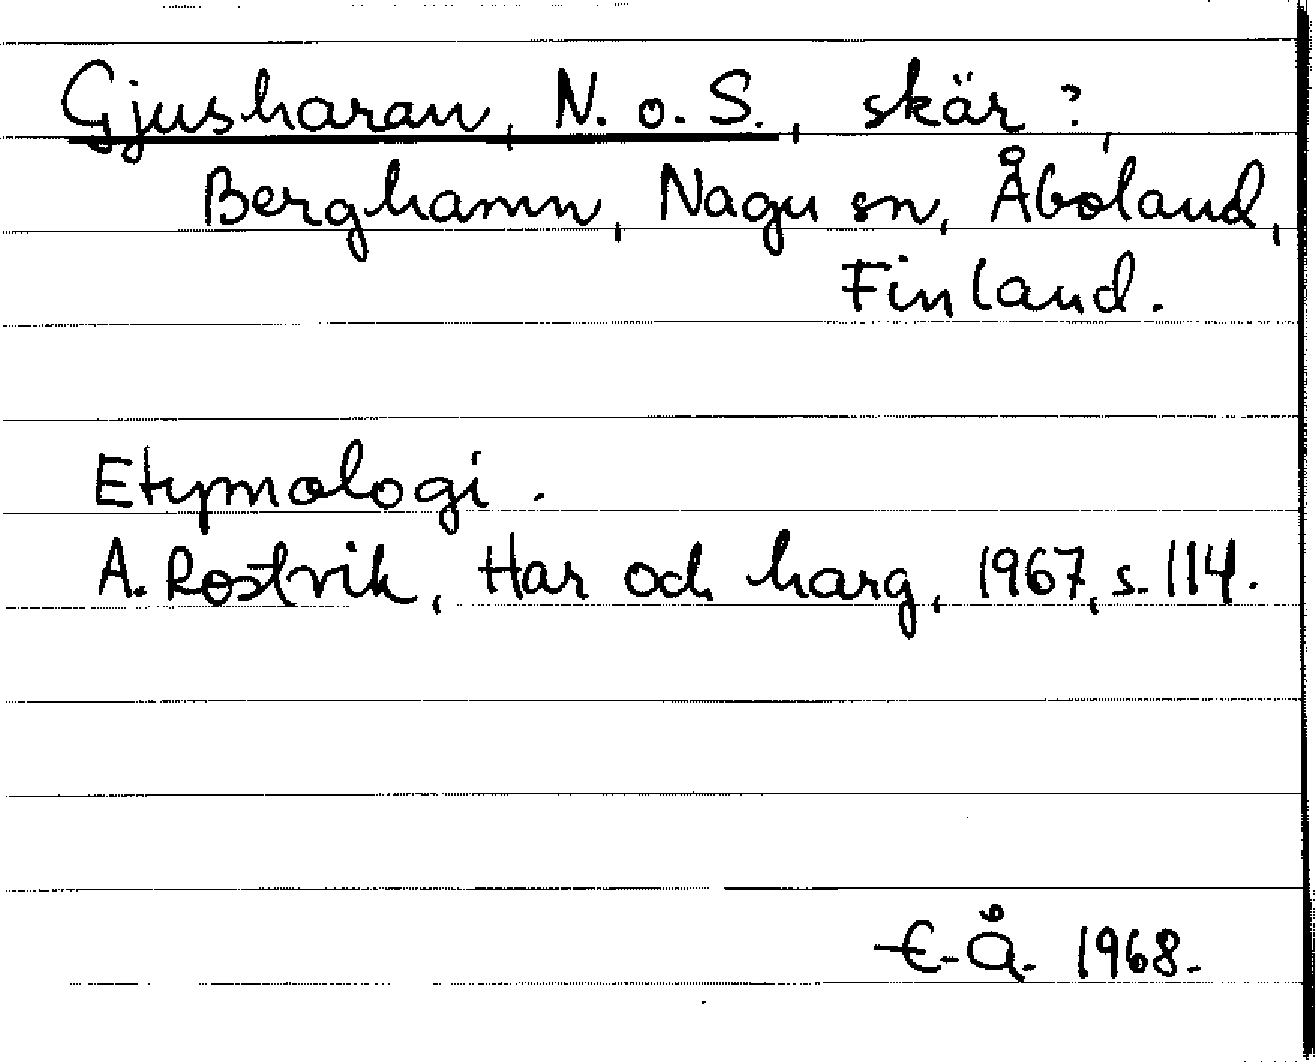 Gjusharan, N. o. S., skär?,
Berghamn, Nagu sn, Åboland,
Finland.
Etymologi.
A. Rostvik, Har och harg, 1967, s. 114.
E. Å. 1968.